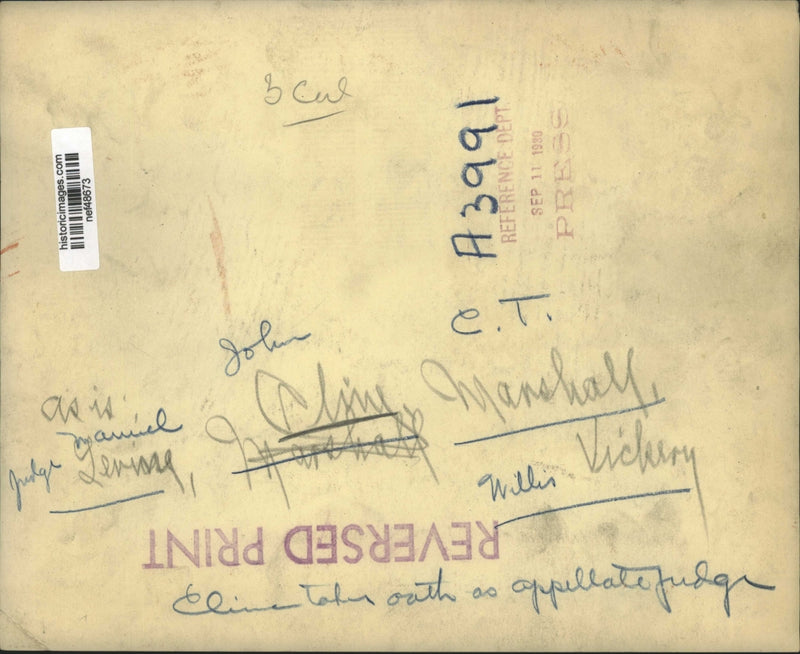 3 Col
historicimages.com
nef48673
A3991
REFERENCE DEPT.
SEP 11 1930
PRESS
C. T.
John
as is
Cline, Marshall,
Manuel
Judge Levine, Marshall
Willis Vickery
REVERSED PRINT
Cline takes oath as appellate judge